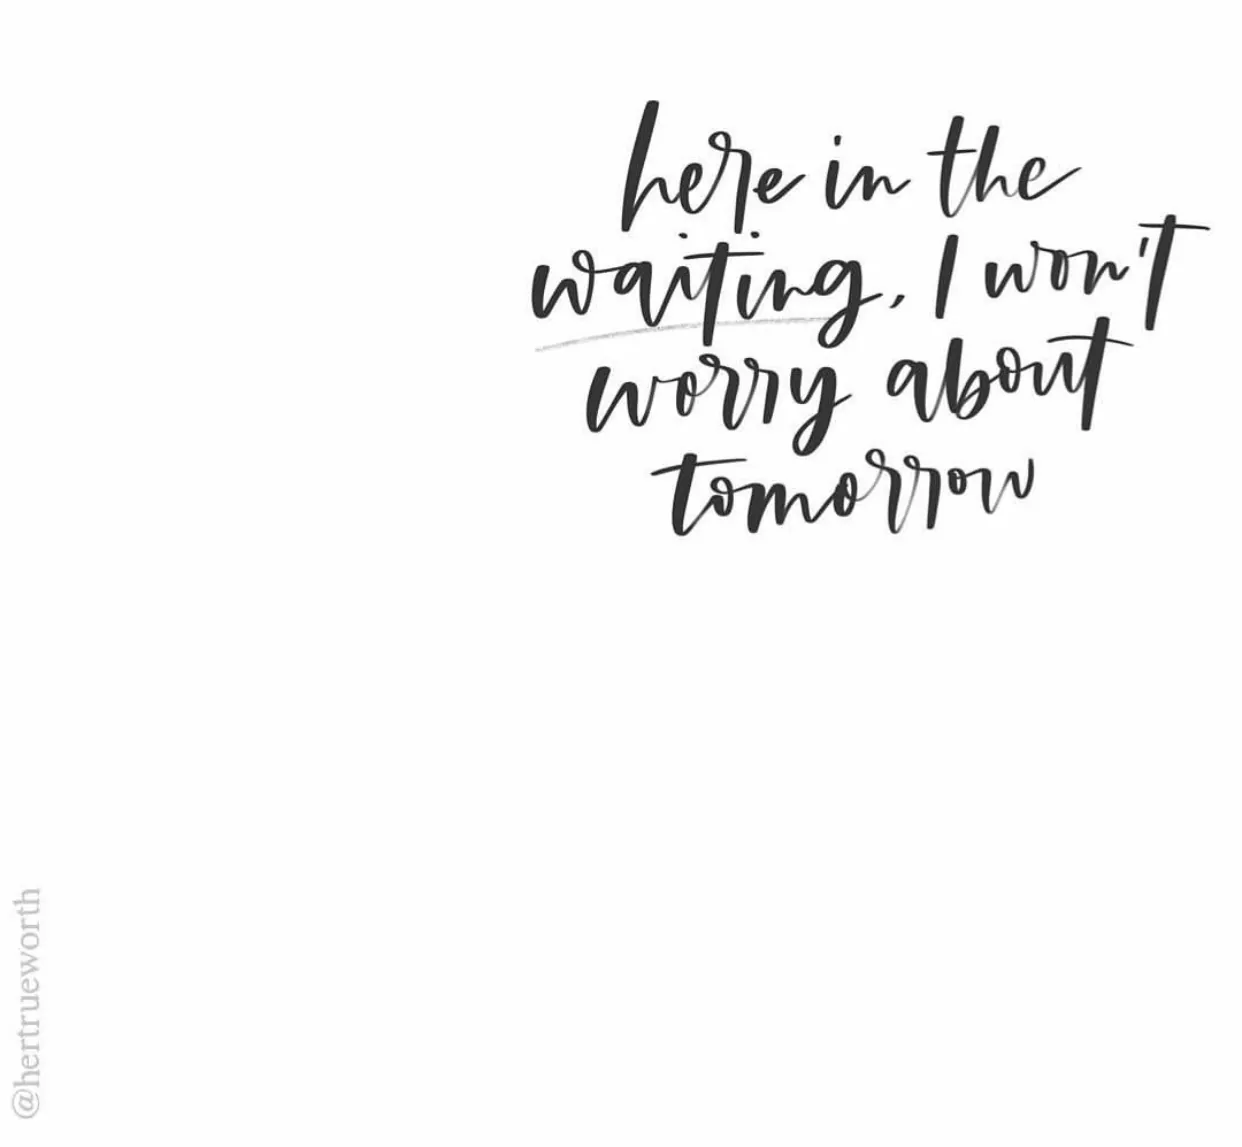 here in the
waiting, I won't
worry about
tomorrow
@hertrueworth